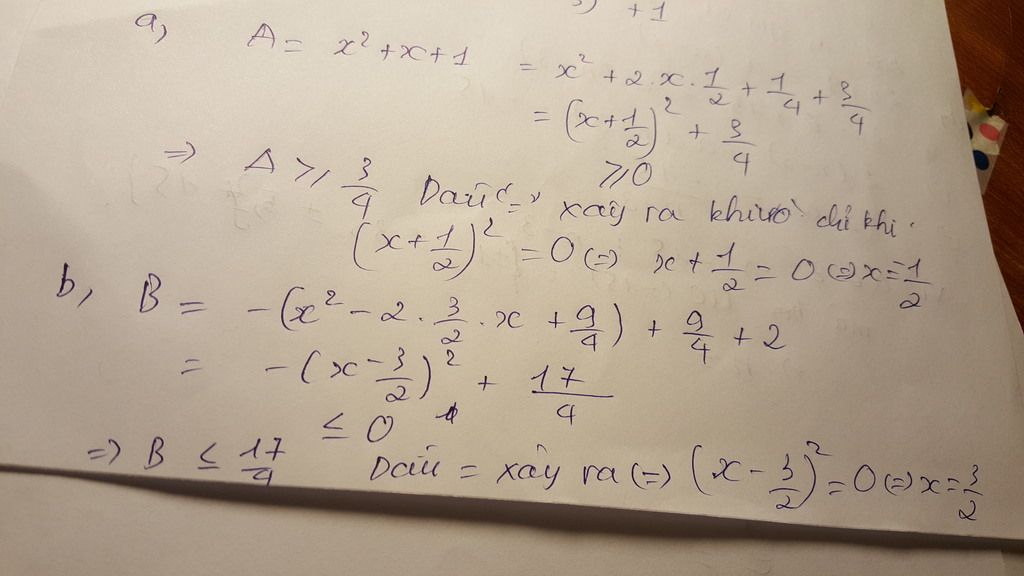 +1
a, A = x² + x + 1 = x² + 2.x.1/2 + 1/4 + 3/4
= (x + 1/2)² + 3/4
≥ 0
=> A ≥ 3/4 Dấu "=" xảy ra khi và chỉ khi.
(x + 1/2)² = 0 <=> x + 1/2 = 0 <=> x = -1/2
b, B = -(x² - 2.3/2.x + 9/4) + 9/4 + 2
= -(x - 3/2)² + 17/4
≤ 0
=> B ≤ 17/4 Dấu = xảy ra <=> (x - 3/2)² = 0 <=> x = 3/2